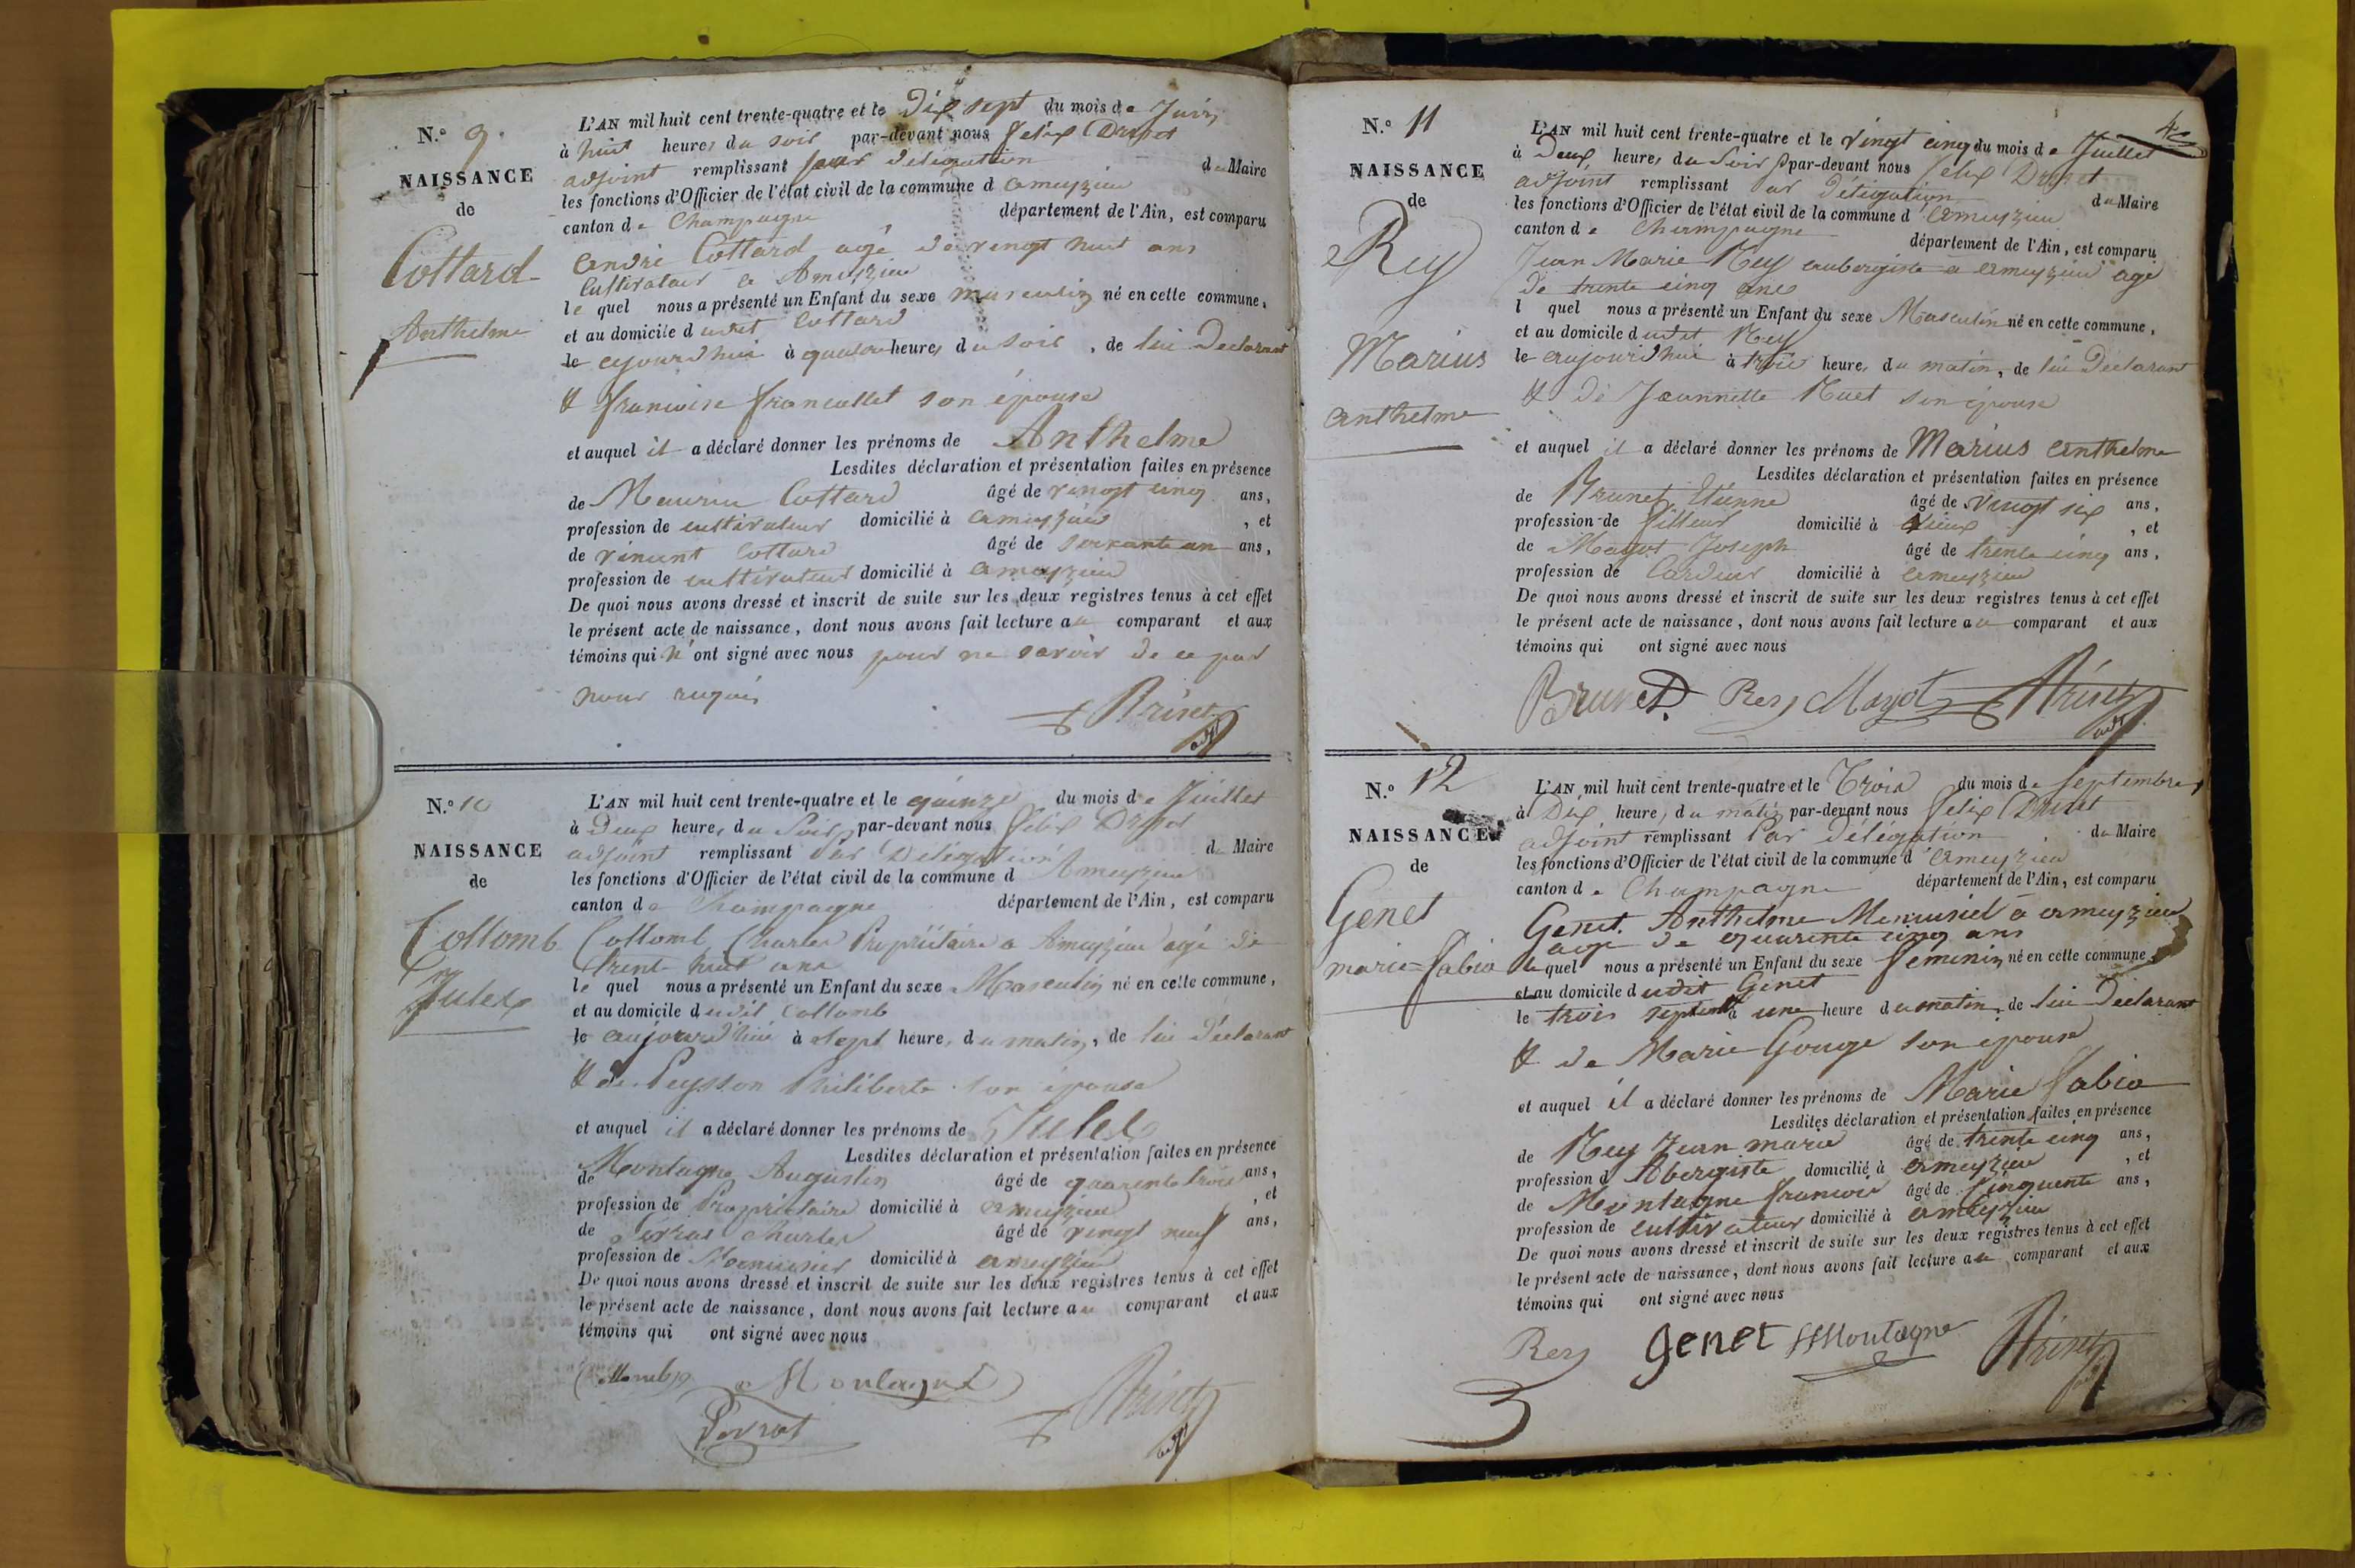 N.o 9.
NAISSANCE
de
Cottard
Anthelme
L'AN mil huit cent trente-quatre et le Dix sept du mois de Juin
à huit heures du soir par-devant nous felix
adjoint remplissant par délégation du Maire
les fonctions d'Officier de l'état civil de la commune d ameyzieu
canton de Champagne département de l'Ain, est comparu
andré Cottard agé de vingt huit ans
Cultivateur a Ameyzieu
le quel nous a présenté un Enfant du sexe masculin né en cette commune,
et au domicile dudit Cottard
le ajourdhui à quatre heures du soir, de lui Declarant
& francoise francallet son épouse
et auquel il a déclaré donner les prénoms de Anthelme
Lesdites déclaration et présentation faites en présence
de Cottard âgé de vingt cinq ans,
profession de cultivateur domicilié à ameyzieu, et
de vincent Cottard âgé de soixante un ans,
profession de cultivateur domicilié à ameyzieu
De quoi nous avons dressé et inscrit de suite sur les deux registres tenus à cet effet
le présent acte de naissance, dont nous avons fait lecture au comparant et aux
témoins qui n'ont signé avec nous pour ne savoir de ce par
nous requis
adjt
N.o 10
NAISSANCE
de
Collomb
Jules
L'AN mil huit cent trente-quatre et le quinze du mois de Juillet
à Deux heures du Soir par-devant nous félix
adjoint remplissant Par Délégation d Maire
les fonctions d'Officier de l'état civil de la commune d Ameyzieu
canton de Champagne département de l'Ain, est comparu
Collomb Charles Propriétaire a Ameyzieu agé de
trente huit ans
le quel nous a présenté un Enfant du sexe Masculin né en cette commune,
et au domicile dudit Collomb
le aujourd'hui à sept heures du matin, de lui déclarant
& de Peysson Philiberte son épouse
et auquel il a déclaré donner les prénoms de Jules
Lesdites déclaration et présentation faites en présence
de Montagne Augustin âgé de quarente trois ans,
profession de Propriétaire domicilié à ameyzieu, et
de Charles âgé de vingt neuf ans,
profession de Menuisier domicilié à ameyzieu
De quoi nous avons dressé et inscrit de suite sur les deux registres tenus à cet effet
le présent acte de naissance, dont nous avons fait lecture au comparant et aux
témoins qui ont signé avec nous
Collomb Montagne
adjt
N.o 11
NAISSANCE
de
Rey
Marius
anthelme
L'AN mil huit cent trente-quatre et le vingt cinq du mois de Juillet
à Deux heures du Soir par-devant nous félix
adjoint remplissant Par Délégation du Maire
les fonctions d'Officier de l'état civil de la commune d'ameyzieu
canton de Champagne département de l'Ain, est comparu
Jean Marie Rey aubergiste a ameyzieu agé
de trente cinq ans
l quel nous a présenté un Enfant du sexe Masculin né en cette commune,
et au domicile dudit Rey
le aujourd'hui à trois heures du matin, de lui Déclarant
& de Jeannette son épouse
et auquel il a déclaré donner les prénoms de Marius anthelme
Lesdites déclaration et présentation faites en présence
de Brunet Etienne âgé de vingt six ans,
profession de domicilié à, et
de Joseph âgé de trente cinq ans,
profession de Cordier domicilié à ameyzieu
De quoi nous avons dressé et inscrit de suite sur les deux registres tenus à cet effet
le présent acte de naissance, dont nous avons fait lecture au comparant et aux
témoins qui ont signé avec nous
Brunet Rey
adjt
N.o 12
NAISSANCE
de
Genet
marie fabia
L'AN mil huit cent trente-quatre et le Trois du mois de Septembre
à Dix heures du matin par-devant nous félix
adjoint remplissant Par Délégation du Maire
les fonctions d'Officier de l'état civil de la commune d'ameyzieu
canton de Champagne département de l'Ain, est comparu
Genet Anthelme Menuisié a ameyzieu
agé de quarente cinq ans
le quel nous a présenté un Enfant du sexe feminin né en cette commune,
et au domicile dudit Genet
le trois à une heure du matin, de lui Déclarant
& de Marie Gouge son épouse
et auquel il a déclaré donner les prénoms de Marie fabia
Lesdites déclaration et présentation faites en présence
de Rey Jean marie âgé de trente cinq ans,
profession d Abergiste domicilié à ameyzieu, et
de Montagne francois âgé de cinquente ans,
profession de cultivateur domicilié à ameyzieu
De quoi nous avons dressé et inscrit de suite sur les deux registres tenus à cet effet
le présent acte de naissance, dont nous avons fait lecture au comparant et aux
témoins qui ont signé avec nous
Rey Genet Montagne